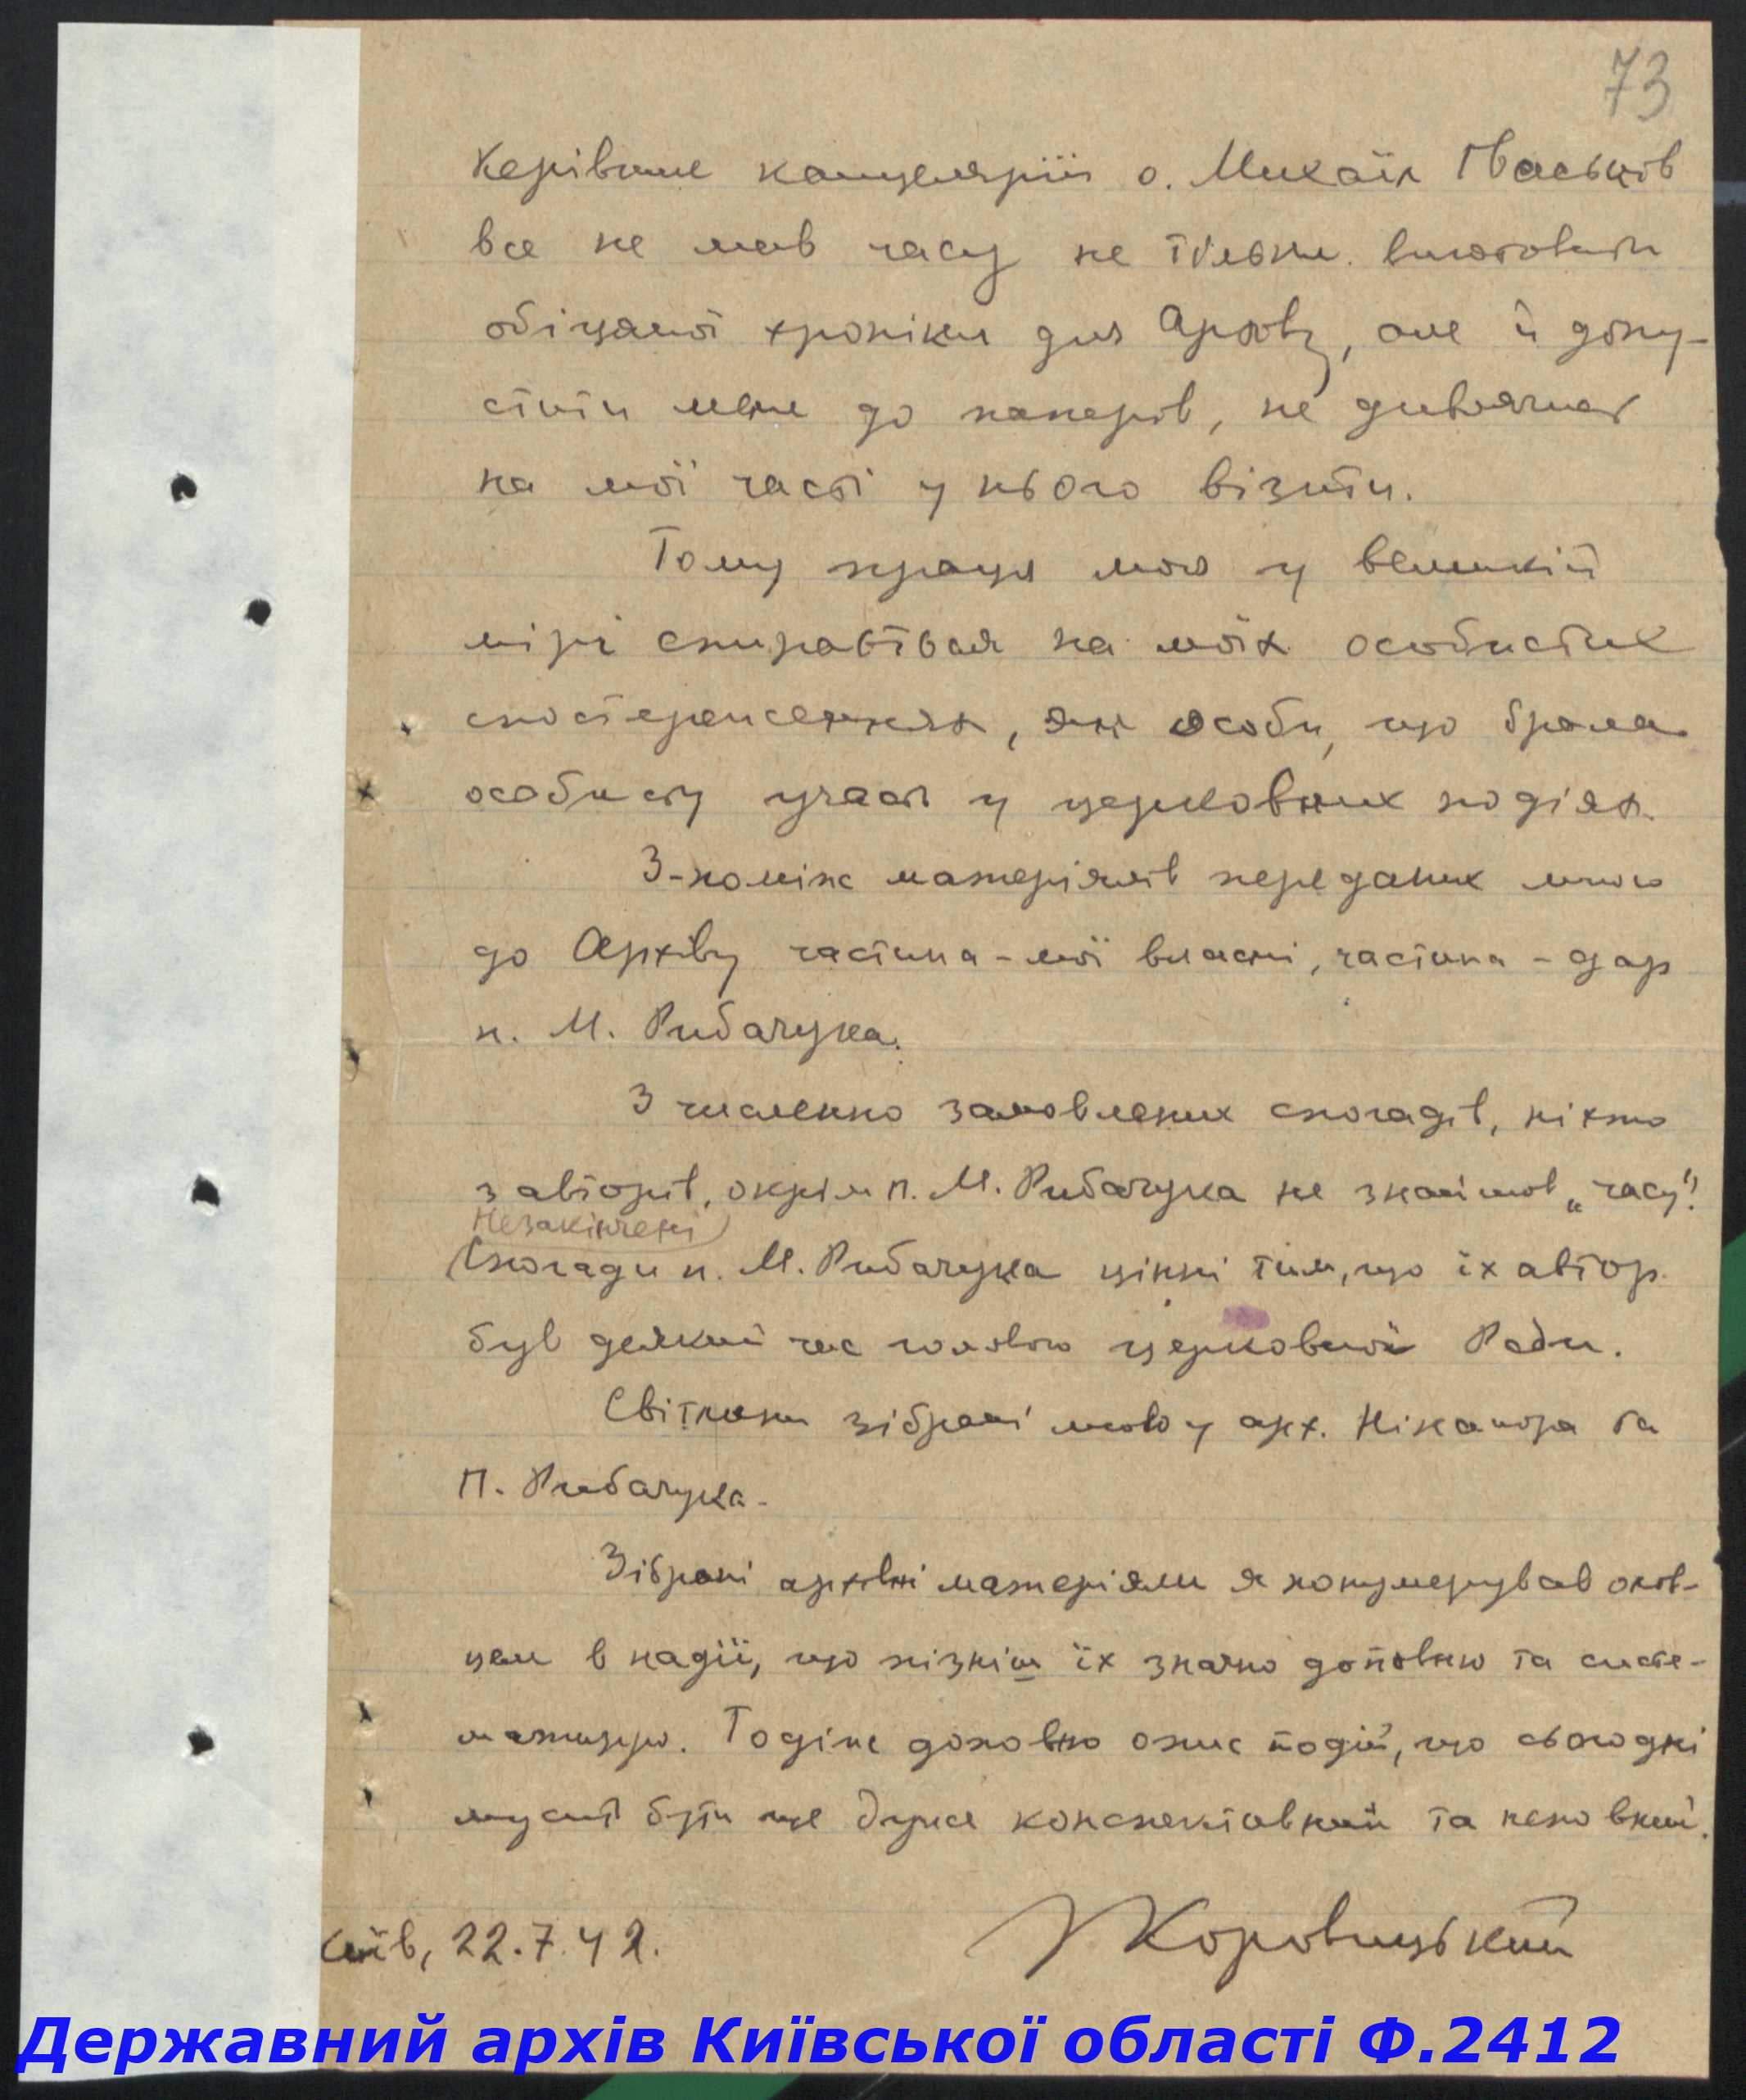 73
Керівник канцелярії о. Михаїл
все не мав часу не тільки виготовити
обіцяної хроніки для Архіву, але й допу-
стити мене до паперів, не дивлячись
на мої часті у нього візити.
Тому праця моя у великій
мірі спиралась на моїх особистих
спостереженнях, як особи, що брала
особисту участь у церковних подіях.
З-поміж матеріялів переданих мною
до Архіву частина - мої власні, частина - дар
п. М. Рибачука.
З численно замовлених спогадів, ніхто
з авторів, окрім п. М. Рибачука не знайшов „часу".
Незакінчені
Спогади п. М. Рибачука цінні тим, що їх автор
був деякий час головою церковної Ради.
Світлини зібрані мною у арх. Ніканора та
П. Рибачука.
Зібрані архівні матеріяли я понумерував олів-
цем в надії, що пізніш їх значно доповню та систе-
матизую. Тоді ж доповню опис подій, що сьогодні
мусить бути ще дуже конспективний та неповний.
Київ, 22.7.42.
І Коровицький
Державний архів Київської області Ф.2412